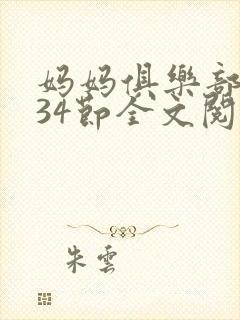 妈妈俱樂部
34節全文閱
朱雲